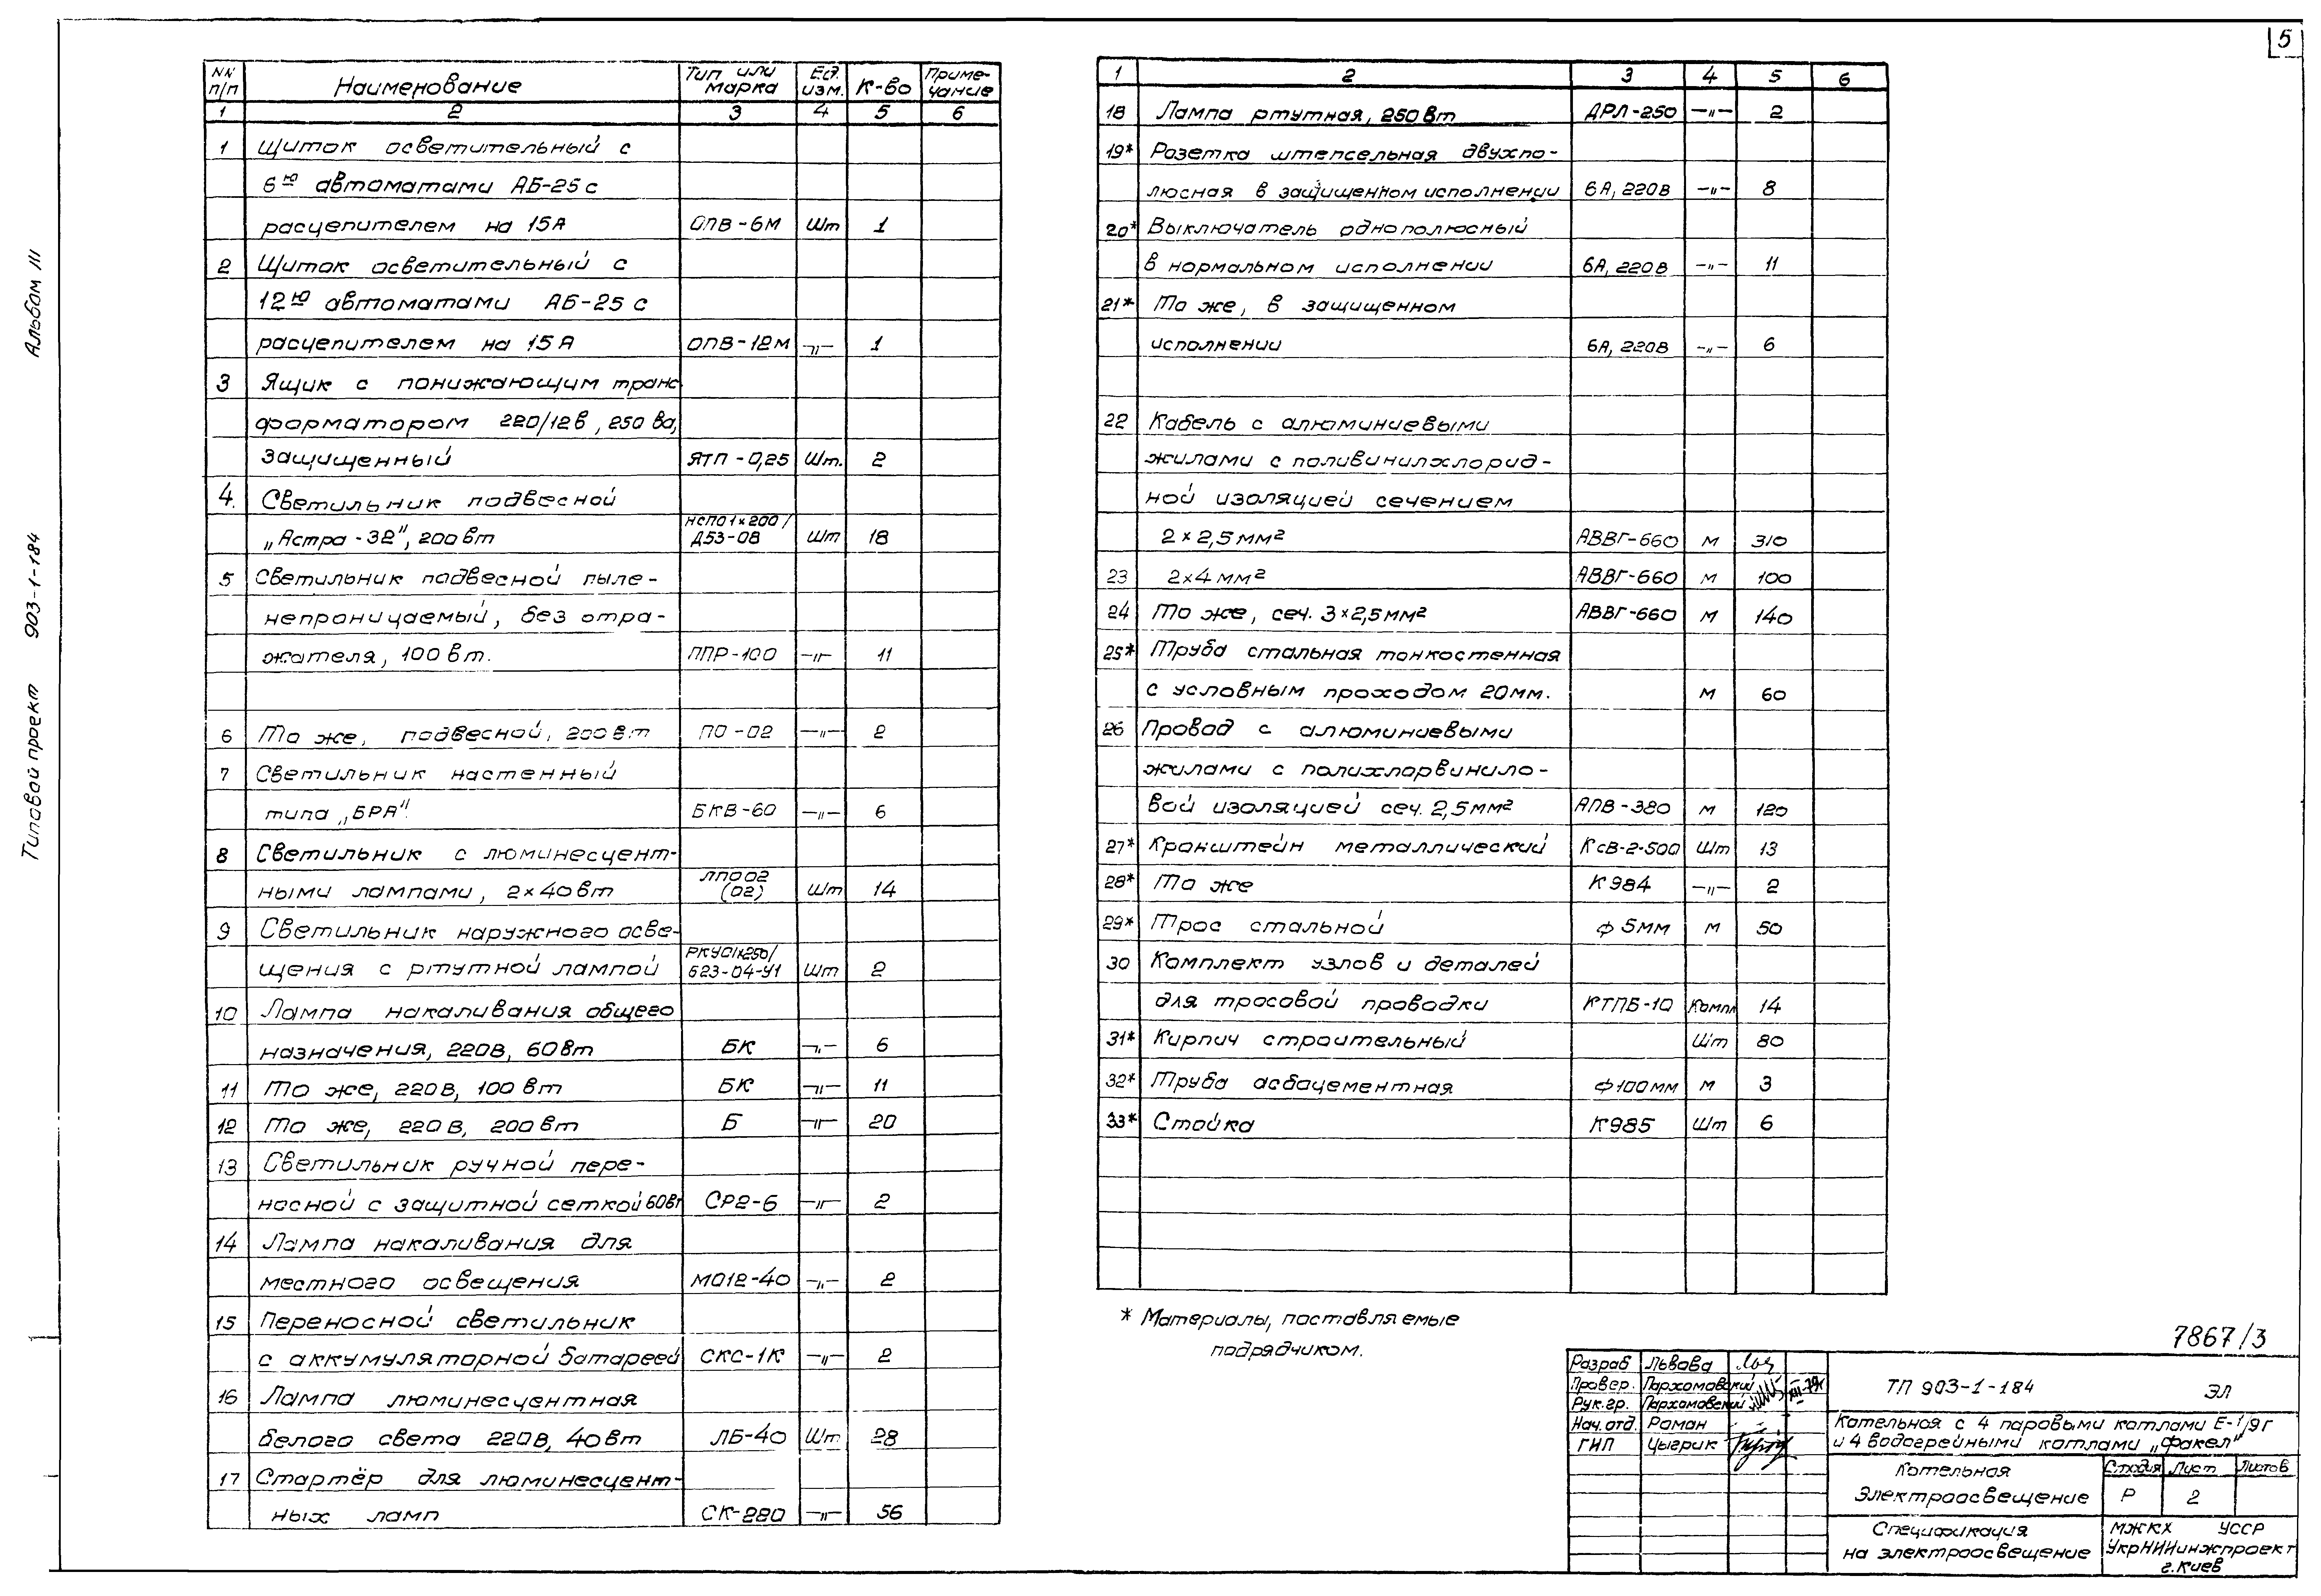 5
Альбом III
Типовой проект 903-1-184
NN п/п | Наименование | Тип или марка | Ед. изм. | К-во | Примечание
1 | 2 | 3 | 4 | 5 | 6
1 Щиток осветительный с
6ю автоматами АБ-25 с
расцепителем на 15А | ОПВ-6М | Шт | 1
2 Щиток осветительный с
12ю автоматами АБ-25 с
расцепителем на 15А | ОПВ-12М | —"— | 1
3 Ящик с понижающим транс
форматором 220/12в, 250 ва,
защищенный | ЯТП-0,25 | Шт. | 2
4. Светильник подвесной
„Астра-32", 200вт | НСП01×200/Д53-08 | Шт | 18
5 Светильник подвесной пыле-
непроницаемый, без отра-
жателя, 100вт. | ППР-100 | —"— | 11
6 То же, подвесной, 200вт | ПО-02 | —"— | 2
7 Светильник настенный
типа „БРА" | БКВ-60 | —"— | 6
8 Светильник с люминесцент-
ными лампами, 2×40вт | ЛПО02 (02) | Шт | 14
9 Светильник наружного осве-
щения с ртутной лампой | РКУ01х250/Б23-04-У1 | Шт | 2
10 Лампа накаливания общего
назначения, 220В, 60вт | БК | —"— | 6
11 То же, 220В, 100вт | БК | —"— | 11
12 То же, 220В, 200вт | Б | —"— | 20
13 Светильник ручной пере-
носной с защитной сеткой 60вт | СР2-6 | —"— | 2
14 Лампа накаливания для
местного освещения | МО12-40 | —"— | 2
15 Переносной светильник
с аккумуляторной батареей | СКС-1К | —"— | 2
16 Лампа люминесцентная
белого света 220В, 40вт | ЛБ-40 | Шт | 28
17 Стартёр для люминесцент-
ных ламп | СК-220 | —"— | 56
1 | 2 | 3 | 4 | 5 | 6
18 Лампа ртутная, 250вт | ДРЛ-250 | —"— | 2
19* Розетка штепсельная двухпо-
люсная в защищенном исполнении | 6А, 220В | —"— | 8
20* Выключатель однополюсный
в нормальном исполнении | 6А, 220В | —"— | 11
21* То же, в защищенном
исполнении | 6А, 220В | —"— | 6
22 Кабель с алюминиевыми
жилами с поливинилхлорид-
ной изоляцией сечением
2×2,5мм² | АВВГ-660 | м | 310
23 2×4мм² | АВВГ-660 | м | 100
24 То же, сеч. 3×2,5мм² | АВВГ-660 | м | 140
25* Труба стальная тонкостенная
с условным проходом 20мм. | м | 60
26 Провод с алюминиевыми
жилами с полихлорвинило-
вой изоляцией сеч. 2,5мм² | АПВ-380 | м | 120
27* Кронштейн металлический | КсВ-2-500 | Шт | 13
28* То же | К984 | —"— | 2
29* Трос стальной | ф 5мм | м | 50
30 Комплект узлов и деталей
для тросовой проводки | КТПБ-10 | Компл | 14
31* Кирпич строительный | Шт | 80
32* Труба асбоцементная | ф100мм | м | 3
33* Стойка | К985 | Шт | 6
* Материалы, поставляемые
подрядчиком.
7867/3
Разраб Львова
Провер. Пархомовский XII-79г
Рук.гр. Пархомовский
Нач.отд. Роман
ГИП Цыгрик
ТП 903-1-184 ЭЛ
Котельная с 4 паровыми котлами Е-1/9г
и 4 водогрейными котлами „Факел"
Котельная
Электроосвещение
Стадия | Лист | Листов
Р | 2
Спецификация
на электроосвещение
МЖКХ УССР
УкрНИИинжпроект
г.Киев